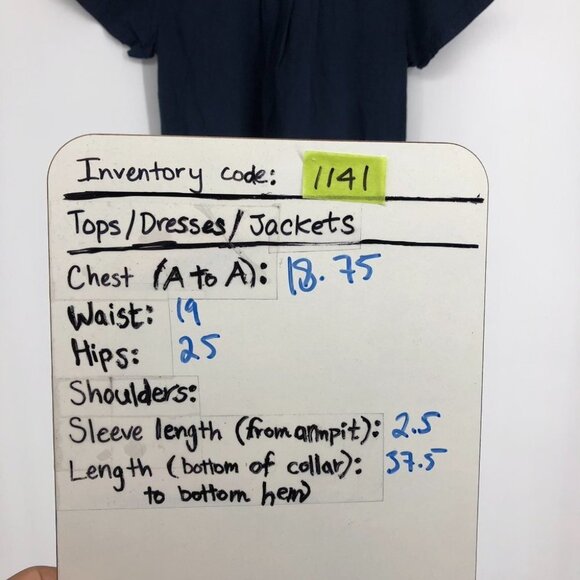 Inventory code: 1141
Tops/Dresses/Jackets
Chest (A to A): 18.75
Waist: 19
Hips: 25
Shoulders:
Sleeve length (from armpit): 2.5
Length (bottom of collar): 37.5
to bottom hem)